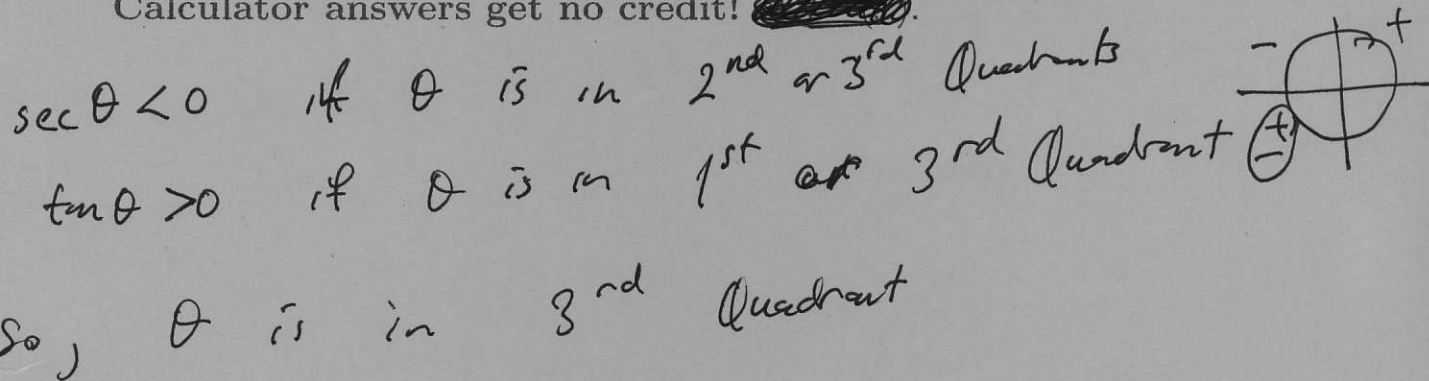 Calculator answers get no credit!
sec θ < 0 if θ is in 2nd or 3rd Quadrants
tan θ > 0 if θ is in 1st or 3rd Quadrant
So, θ is in 3rd Quadrant
- +
+
-